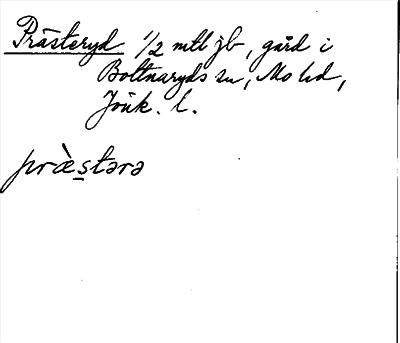 Prästeryd 1/2 mtl jb, gård i
Bottnaryds sn, Mo hd,
Jönk. l.
præ̀stərə